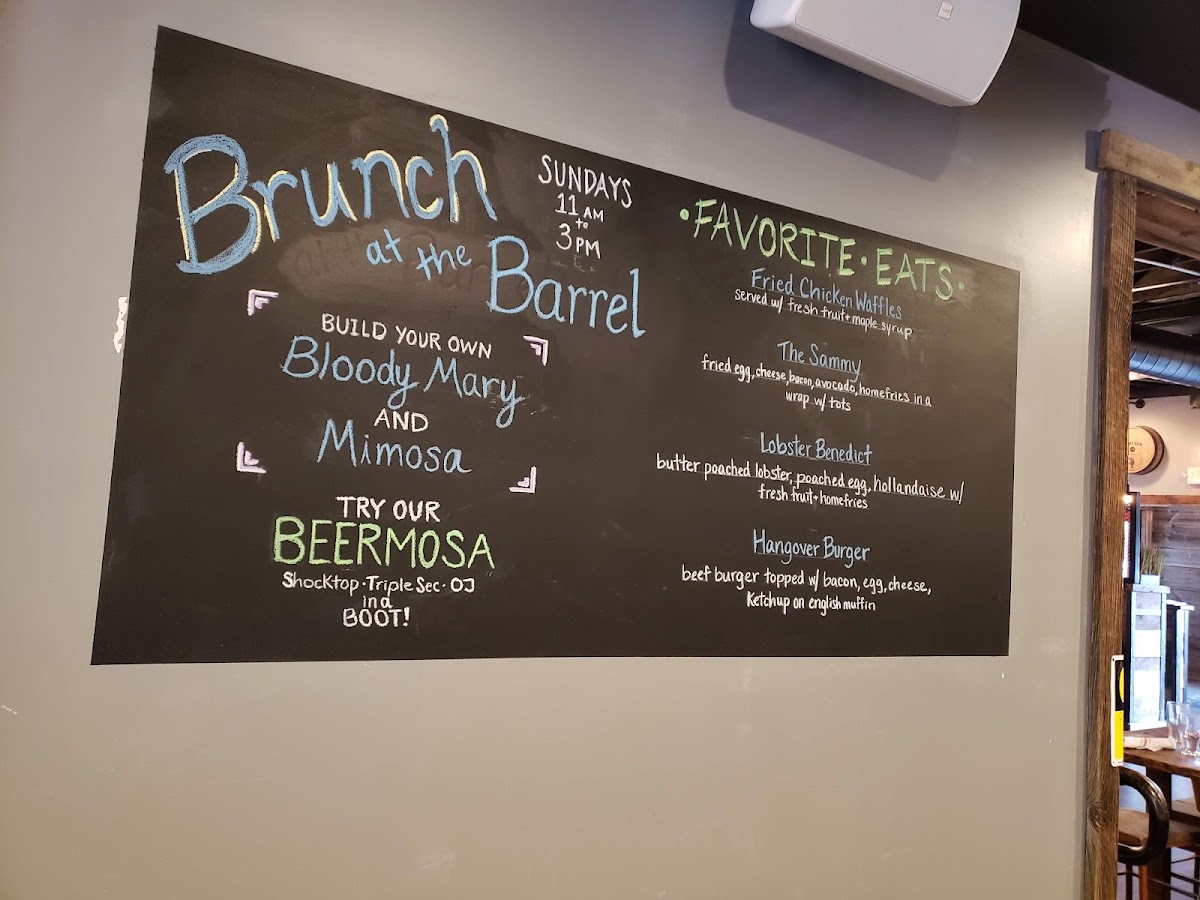 Brunch
at the Barrel
SUNDAYS
11 AM
to
3 PM
BUILD YOUR OWN
Bloody Mary
AND
Mimosa
TRY OUR
BEERMOSA
Shocktop · Triple Sec · OJ
in a
BOOT!
· FAVORITE · EATS ·
Fried Chicken Waffles
served w/ fresh fruit + maple syrup
The Sammy
fried egg, cheese, bacon, avocado, homefries in a
wrap w/ tots
Lobster Benedict
butter poached lobster, poached egg, hollandaise w/
fresh fruit + homefries
Hangover Burger
beef burger topped w/ bacon, egg, cheese,
Ketchup on english muffin